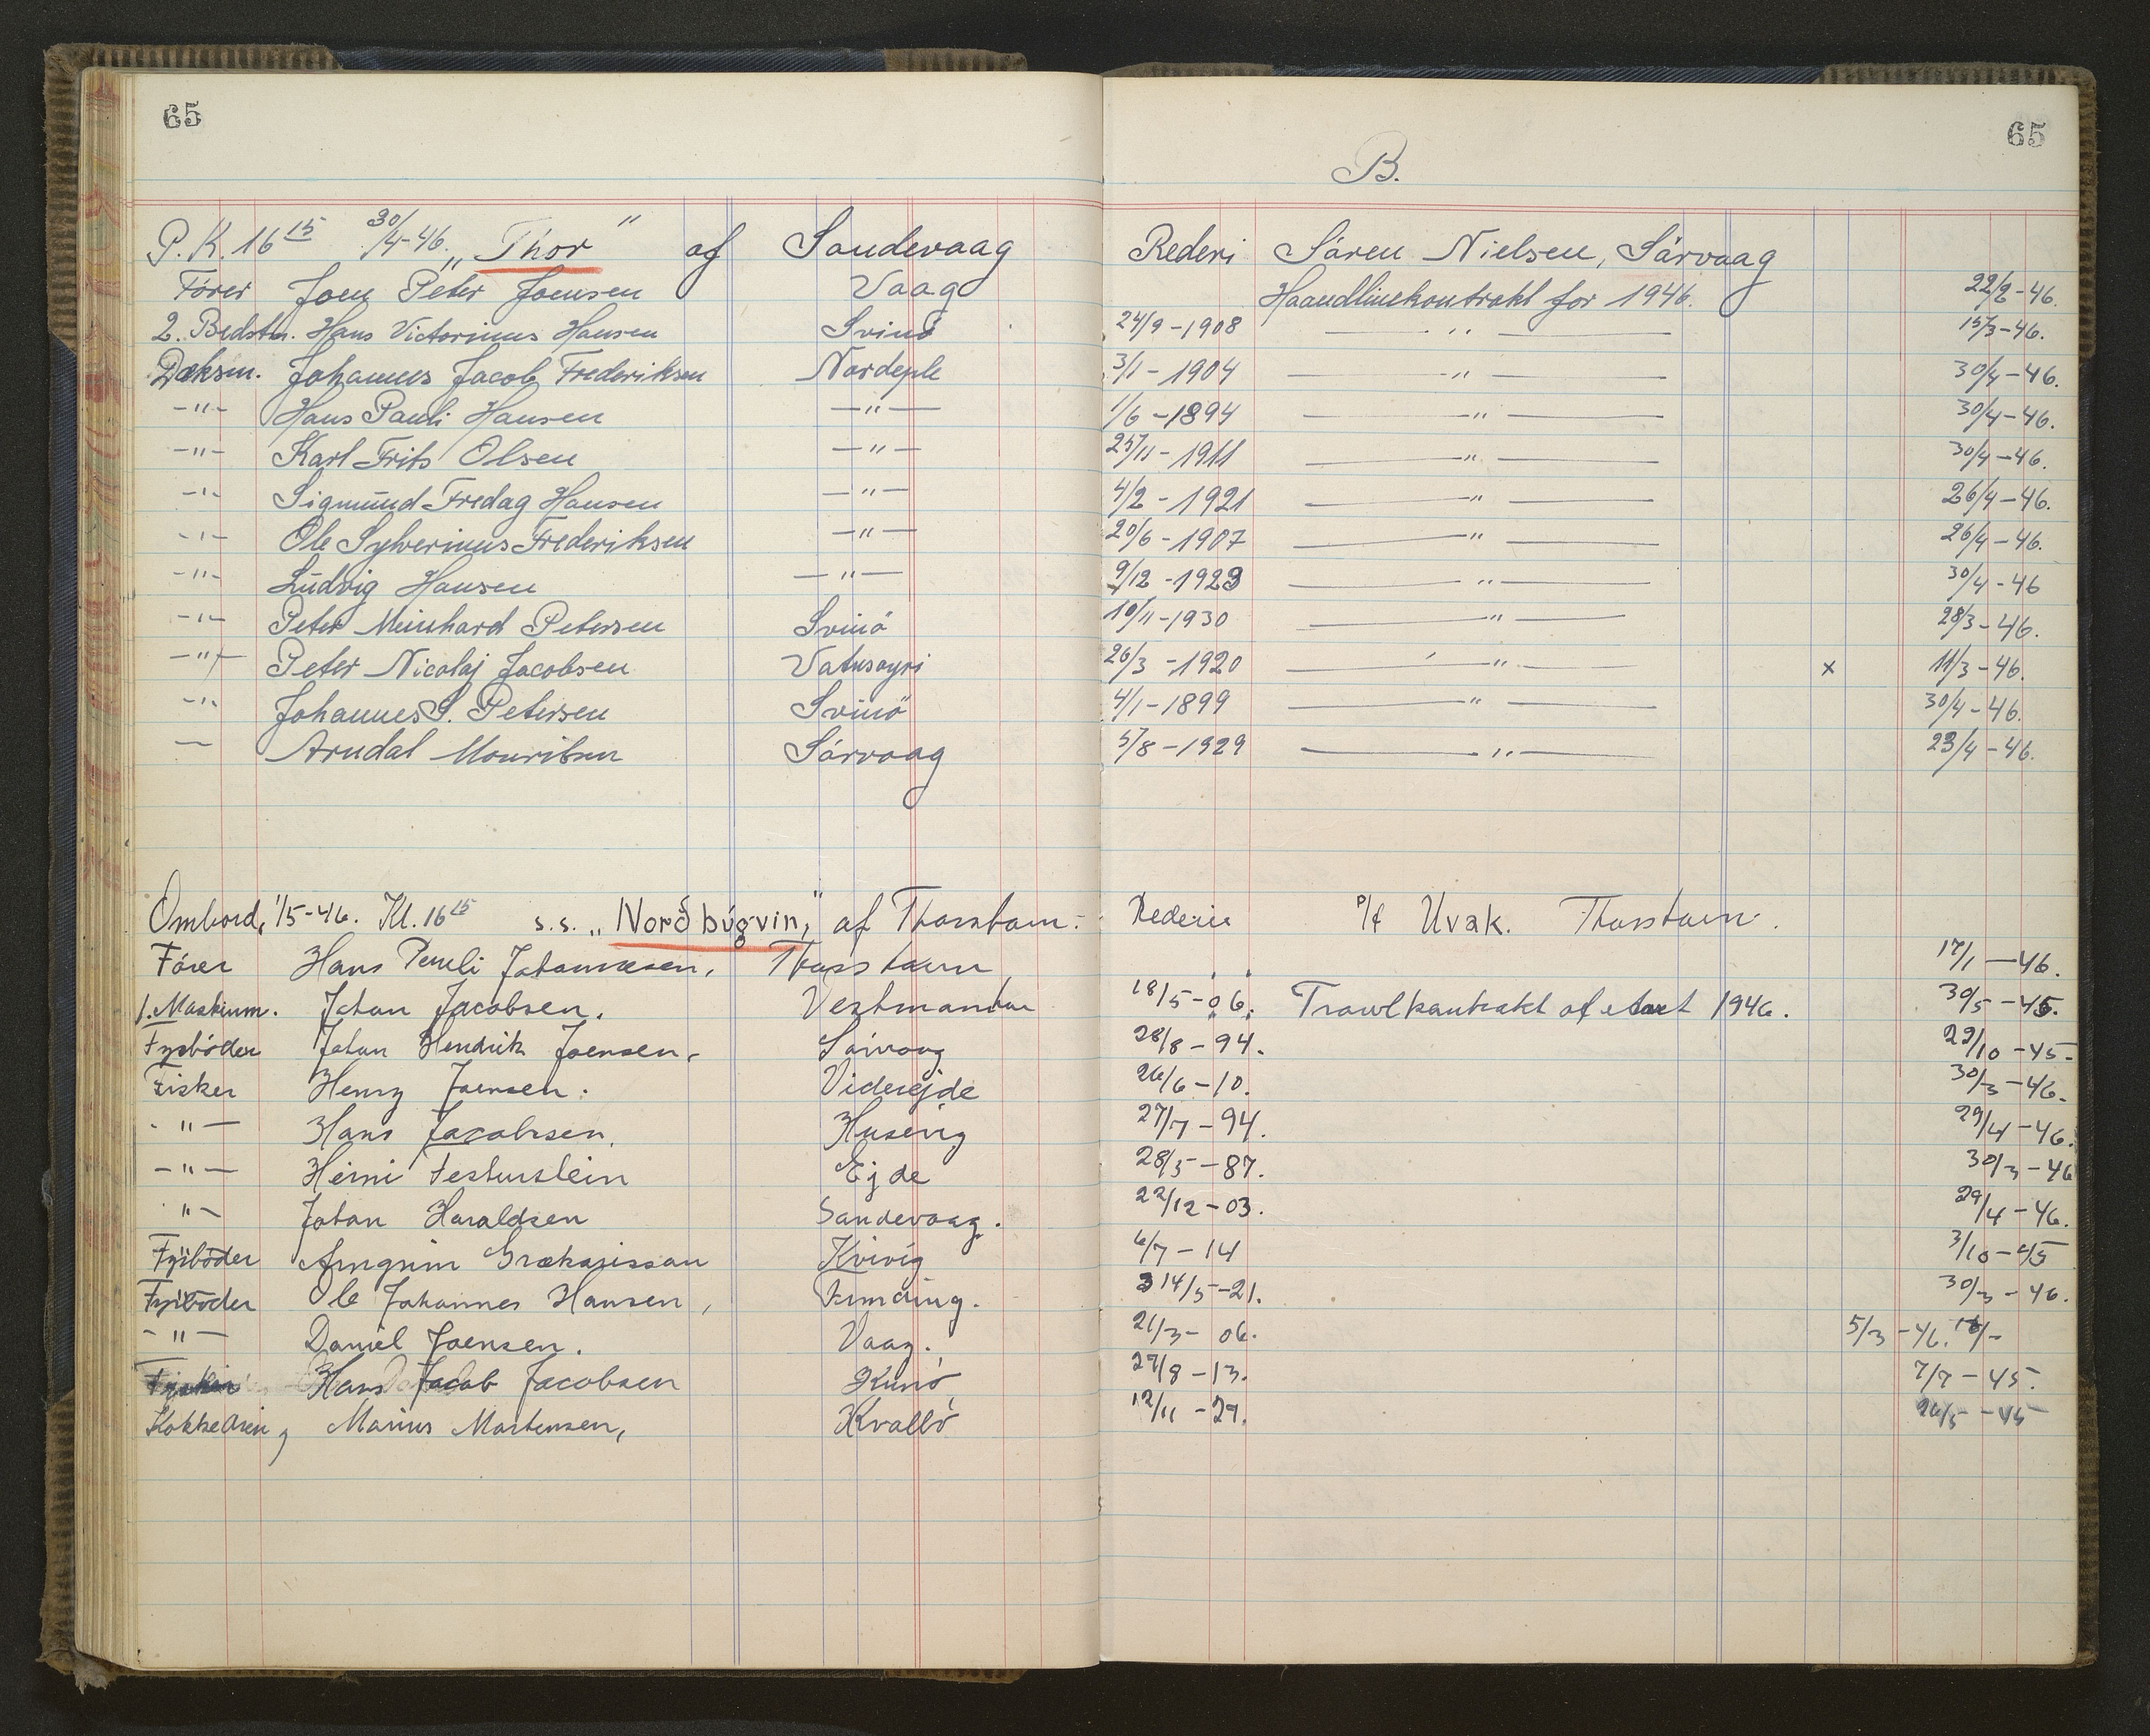 65 65
B.
P.K. 16 15 30/4-46. "Thor" af Sandevaag Rederi Sáren Nielsen, Sárvaag
Fórer Joen Peter Joensen Vaag Haandlinekontrakt for 1946. 22/2-46.
2. Bedstm. Hans Victorinus Hansen Svinó 24/9-1908 — " — 15/3-46.
Dæksm. Johannes Jacob Frederiksen Nordeple 3/1-1904 — " — 30/4-46.
-"- Hans Pauli Hansen —"— 1/6-1894 — " — 30/4-46.
-"- Karl Frits Olsen —"— 25/11-1911 — " — 30/4-46.
-"- Sigmund Fredag Hansen —"— 4/2-1921 — " — 26/4-46.
-"- Ole Sylverinus Frederiksen —"— 20/6-1907 — " — 26/4-46.
-"- Ludvig Hansen —"— 9/12-1923 — " — 30/4-46
-"- Peter Meinhard Petersen Svinó 10/11-1930 — " — 28/3-46.
-"- Peter Nicolaj Jacobsen Vatnsoyri 26/3-1920 — " — x 11/3-46.
-"- Johannes S. Petersen Svinö 4/1-1899 — " — 30/4-46.
— Arndal Mouritsen Sárvaag 5/8-1929 — " — 23/4-46.
Ombord, 1/5-46. Kl. 16 15 s.s. "Norðbúgvin," af Thorshavn. Rederie P/f Uvak. Thorshavn.
Fórer Hans Pauli Johannesen, Thorshavn 17/1-46.
1. Maskinm. Johan Jacobsen. Vestmanhav 18/5-06. Trawlkontrakt af 1946. 30/5-45.
Fyrböder Johan Hendrik Joensen, Sárvaag 28/8-94. 22/10-45-
Fisker Henry Joensen. Viderejde 26/6-10. 30/3-46.
-"- Hans Jacobsen, Husevig 27/7-94. 29/4-46.
-"- Heini Festurstein Ejde 28/5-87. 30/3-46
"- Johan Haraldsen Sandevaag. 22/12-03. 29/4-46.
Fyrböder Arngrim Kvivig 6/7-14 3/10-45
Fyrböder Ole Johannes Hansen, 14/5-21. 30/3-46.
-"- Daniel Joensen. Vaag. 21/3-06. 5/3-46.
Hans Jacob Jacobsen Kunó 27/8-13. 7/7-45.
Marius Martensen, Kvalló 12/11-29. 26/5-45